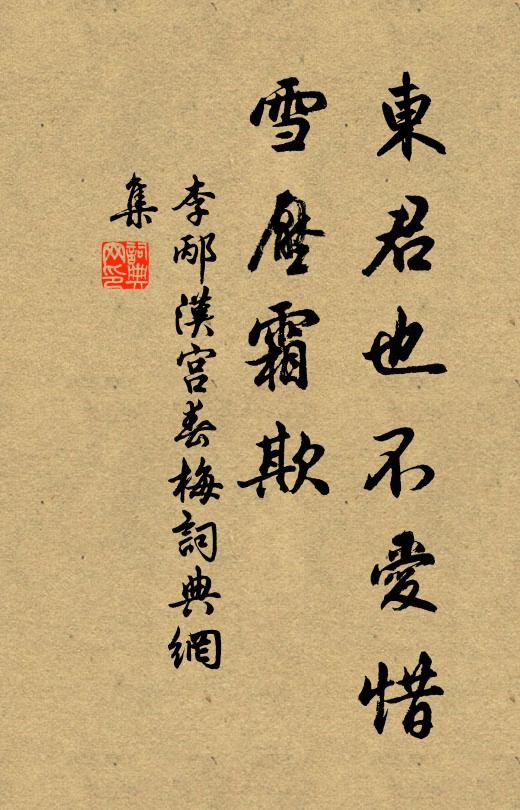 東君也不愛惜
雪壓霜欺
李邴漢宮春梅詞典網
集
詞典
网印